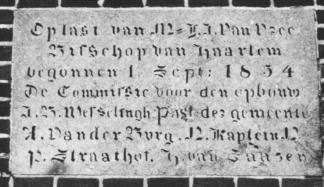 Op last van Mgr F.J. Van Vree
Bisschop van Haarlem
begonnen 1 Sept: 1854
De Commissie voor den opbouw
J.B. Wesselingh. Past: dez gemeente
A. Van der Burg. N. Kaptein. N.
P. Straathof. H. van Zanzen